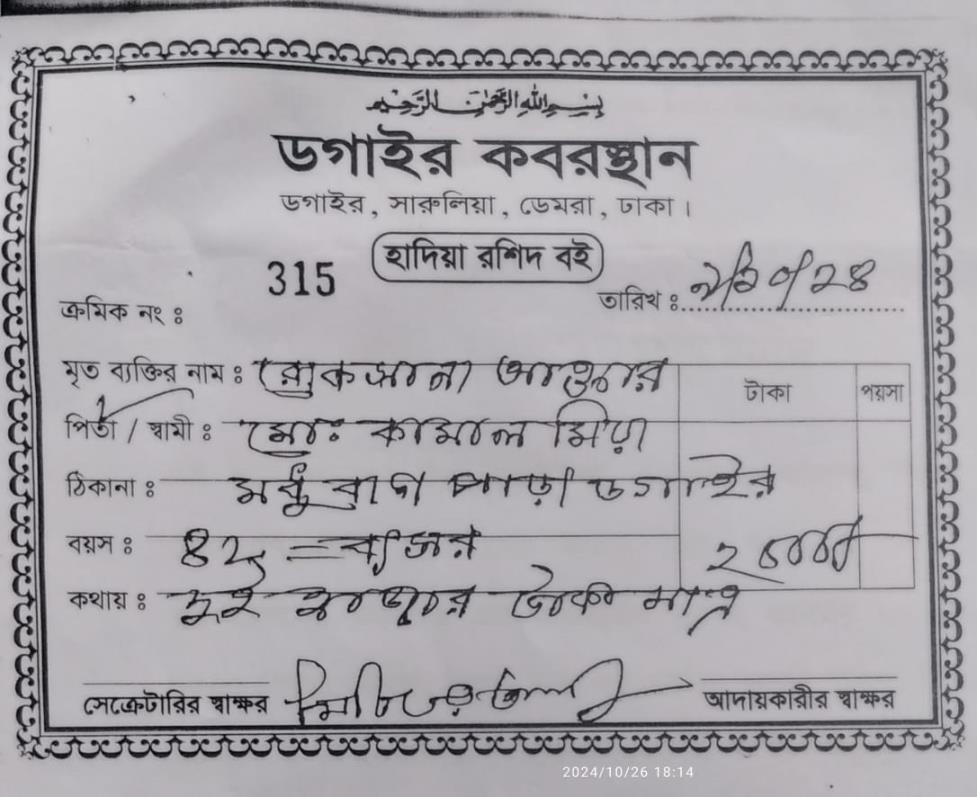 بسم الله الرحمن الرحيم
ডগাইর কবরস্থান
ডগাইর, সারুলিয়া, ডেমরা, ঢাকা।
হাদিয়া রশিদ বই
315
ক্রমিক নং ঃ
তারিখ ঃ
মৃত ব্যক্তির নাম ঃ রোকসানা আক্তার
টাকা পয়সা
পিতা / স্বামী ঃ মোঃ কামাল মিয়া
ঠিকানা ঃ মধুবাগ পাড়া ডগাইর
বয়স ঃ ৪২ = বৎসর
২০০০/
কথায় ঃ দুই হাজার টাকা মাত্র
সেক্রেটারির স্বাক্ষর আদায়কারীর স্বাক্ষর
2024/10/26 18:14